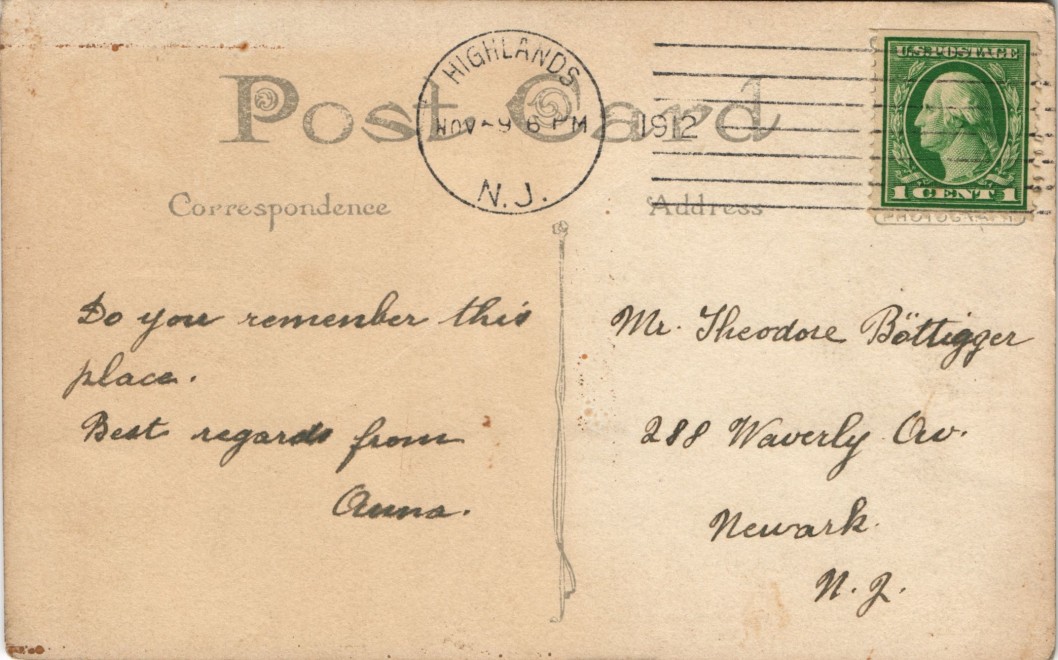 Post Card
HIGHLANDS
NOV - 9 6 PM
1912
N.J.
U.S. POSTAGE
1 CENT 1
Correspondence
Address
Do you remember this
place.
Best regards from
Anna.
Mr. Theodore Böttigger
288 Waverly Av.
Newark.
N. J.